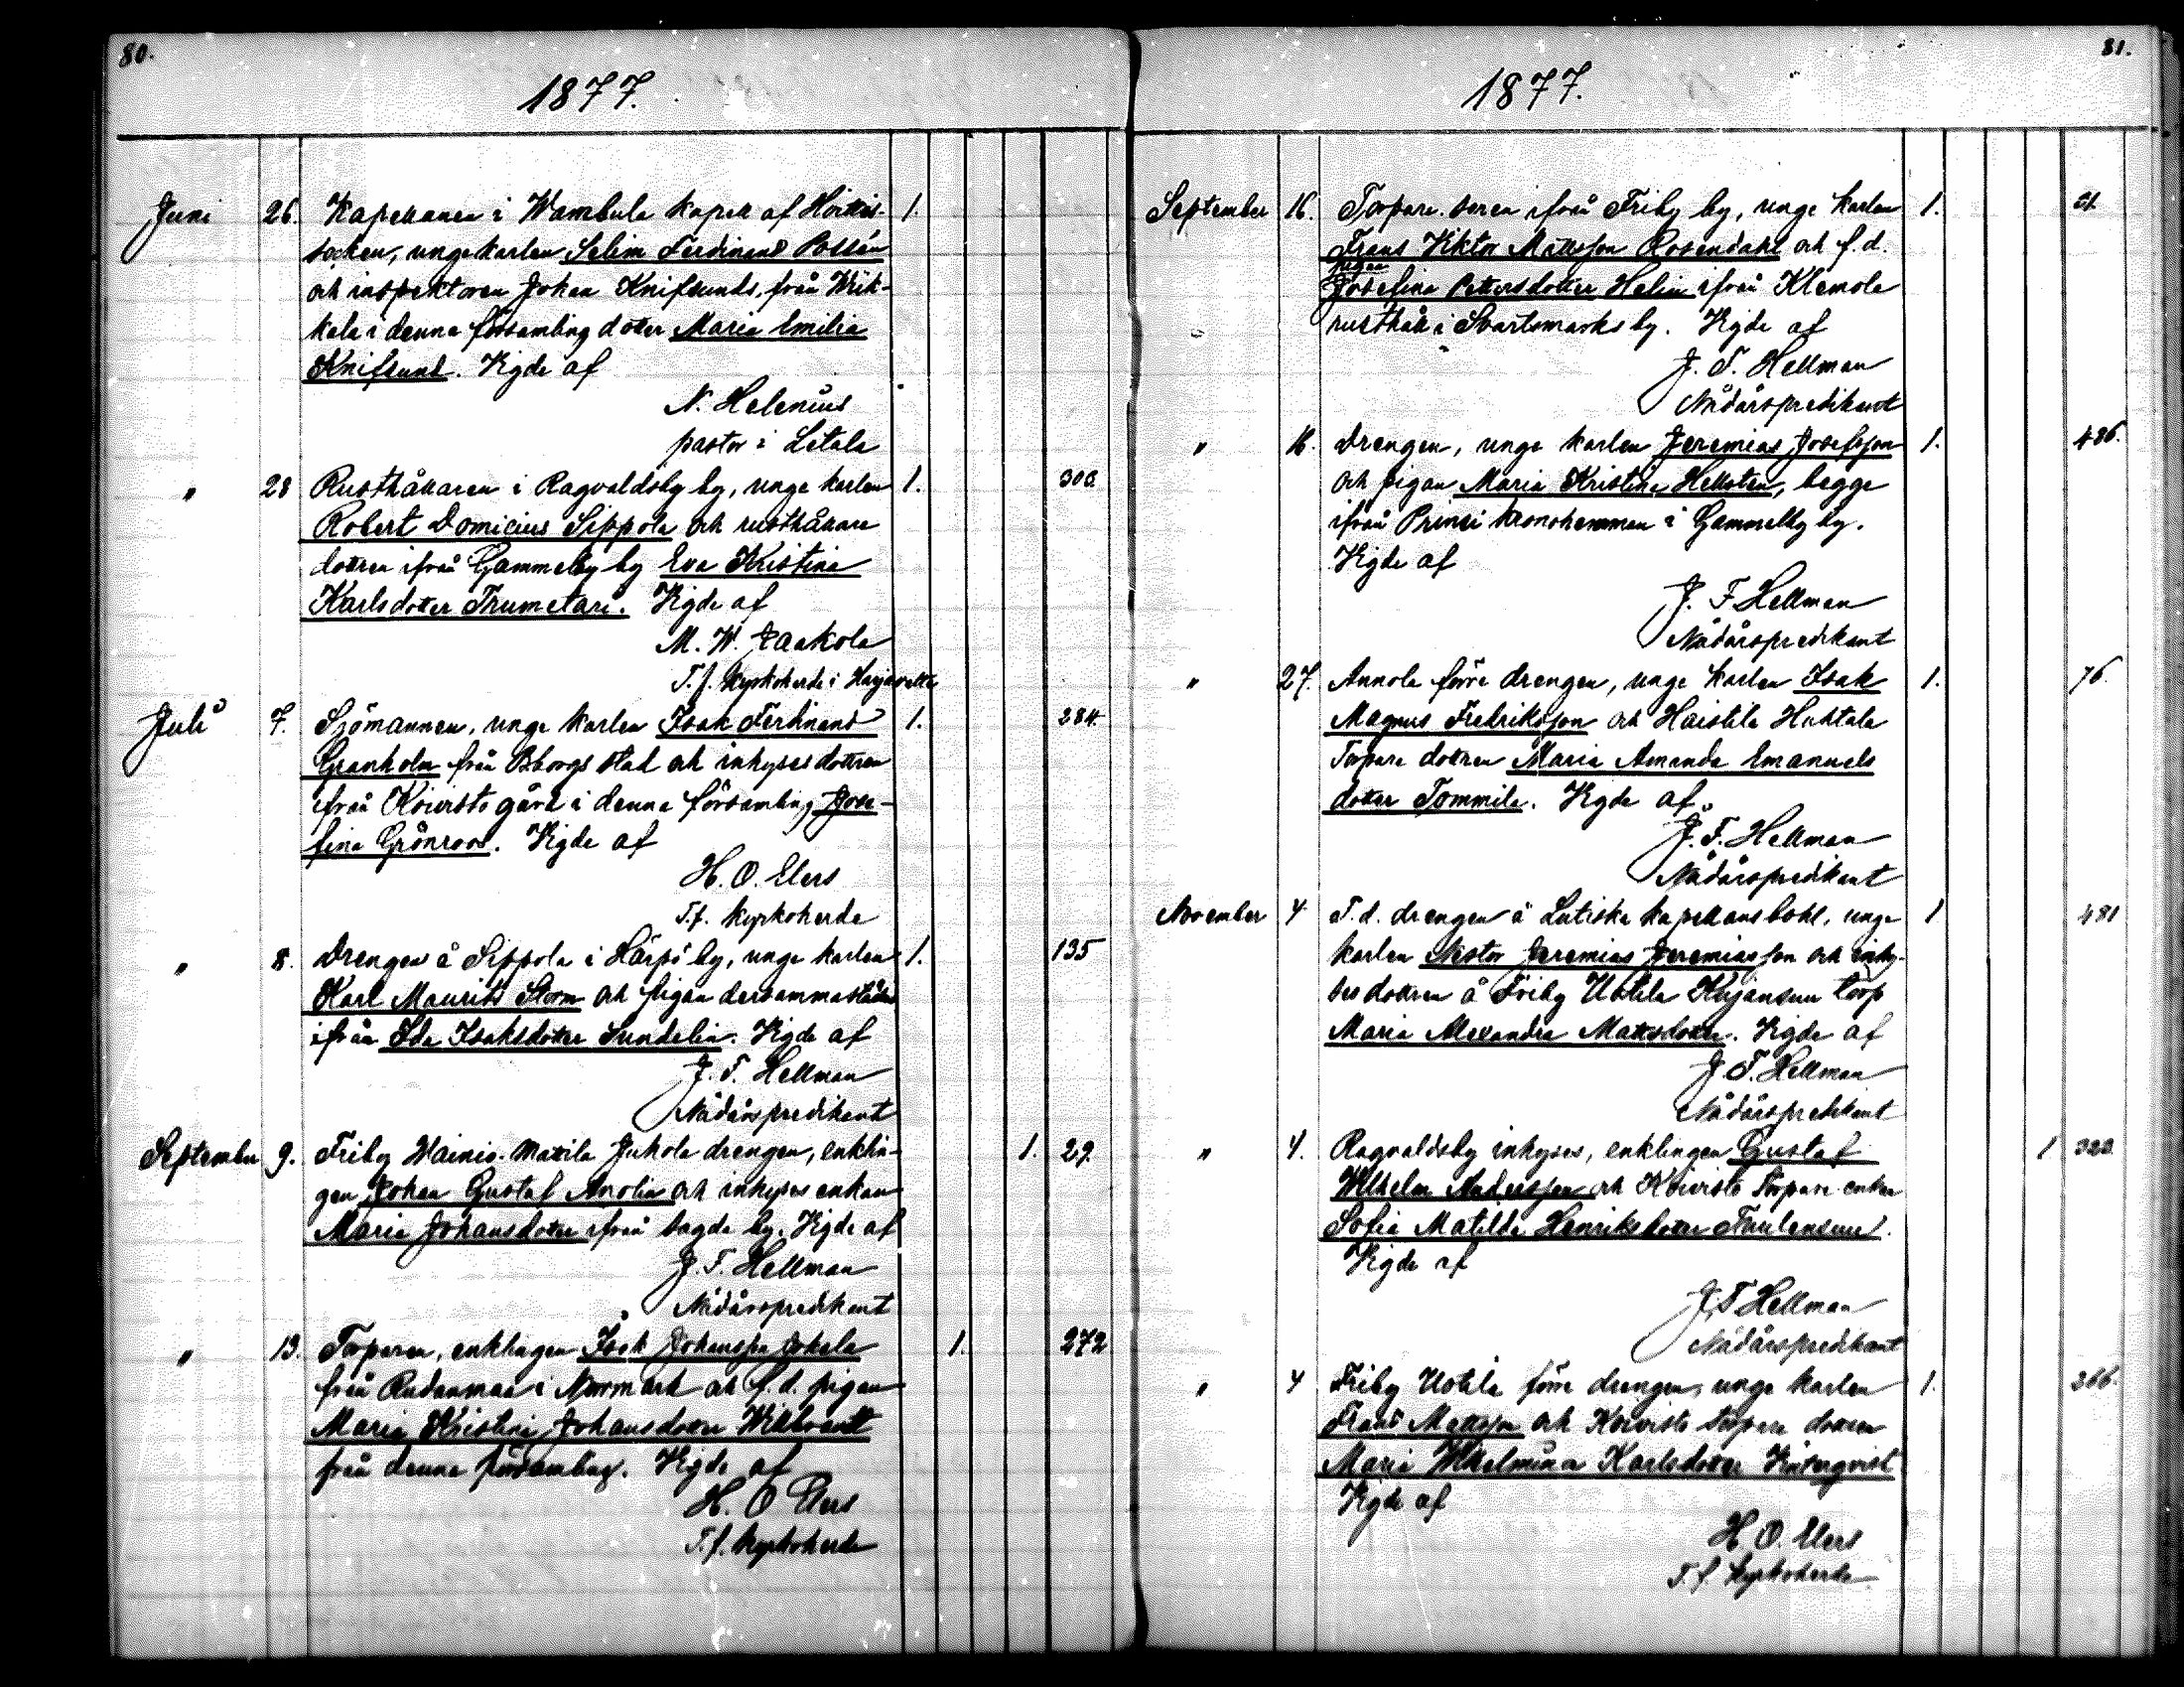 80.
1877.
Juni 26. Kapellanen i Wambula kapell af Hvittis- 1.
socken, ungekarlen Selim Ferdinand Possén
och inspektoren Johan Knifsunds, från
kala i denna församling dotter Maria Emilia
Knifsund. Vigde af
N. Helenius
pastor i Letala
" 28 Rusthållaren i Ragvaldsby by, unge karlen 1. 308.
Robert Domicius Sippola och rusthållare
dottren ifrån Gammelby by Eva Kristina
Karlsdotter Trumetari. Vigde af
M. W. Jaakola
T.f. kyrkoherde i Harjavalta
Juli 7. Sjömannen, unge karlen Isak Ferdinand 1. 284.
Granholm från Bborgs stad och inhyses dottren
ifrån Koivisto gård i denna församling Jose-
fina Grönroos. Vigde af
H. O. Elers
T.f. kyrkoherde
" 8. Drengen å Sippola i Härpö by, unge karlen 1. 135
Karl Maurits Storm och pigan dersammastädes
ifrån Ida Isaksdotter Sundelin. Vigde af
J. F. Hellman
Nådårspredikant
September 9. Friby Wainio-Mattila Jukola drengen, enklin- 1. 29.
gen Johan Gustaf Anolin och inhyses enkan
Maria Johansdotter ifrån sagde by. Vigde af
J. F. Hellman
Nådårspredikant
" 13. Torparen, enklingen Isak Johansson Jokela 1. 272
från Rudanmaa i Norrmark och f.d. pigan
Maria Kristina Johansdotter Willbrandt
från denna församling. Vigde af
H. O Elers
T.f. kyrkoherde
81.
1877.
September 16. Torpare-sonen ifrån Friby by, unge karlen 1. 21.
Frans Viktor Mattsson Rosendahl och f.d.
pigan
Josefina Pettersdotter Helin ifrån Klemola
rusthåll i Svartsmarks by. Vigde af
J. F. Hellman
Nådårspredikant
" 16. Drengen, unge karlen Jeremias Josefsson 1. 486.
och pigan Maria Kristina Hellsten, begge
ifrån Prinsi kronohemman i Gammelby by.
Vigde af
J. F Hellman
Nådårspredikant
" 27. Annola förre drengen, unge karlen Isak 1. 76.
Magnus Fredriksson och Haistila Huhtala
Torpare dottren Maria Amanda Emanuels
dotter Tommila. Vigde af
J. F. Hellman
Nådårspredikant
November 4. F.d. drengen å Lutiska kapellansbohl, unge 1 481
karlen Nestor Jeremias Jeremiasson och inhy-
ses dottren å Friby Uotila Kujansuu torp
Maria Alexandra Mattsdotter. Vigde af
J. F. Hellman
Nådårspredikant
" 4. Ragvaldsby inhyses, enklingen Gustaf 1 322.
Wilhelm Andersson och Koivisto Torpare enkan
Sofia Matilda Henriksdotter
Vigde af
J. F Hellman
Nådårspredikant
" 4 Friby Uotila förre drengen, unge karlen 1. 266.
Frans Mattsson och Koivisto torpare dottren
Maria Wilhelmina Karlsdotter
Vigde af
H. O. Elers
T.f. kyrkoherde